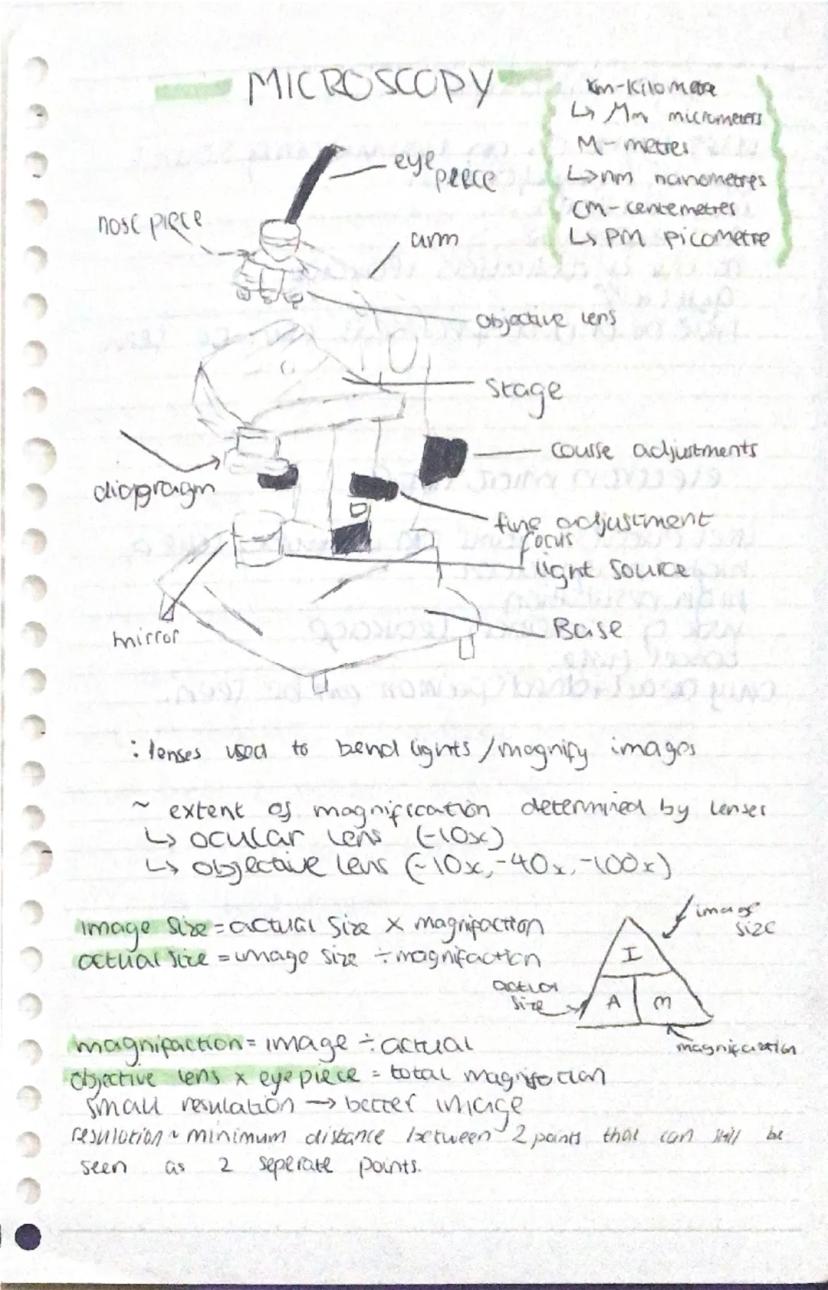 MICROSCOPY
km-Kilometre
↳ Mm micrometers
M- metres
↳ nm nanometres
CM- centemetres
↳ PM picometre
eye
peece
nose piece
arm
objective lens
Stage
course adjustments
diapragm
fine adjustment
focus
light source
mirror
Base
: lenses used to bend lights / magnify images
~ extent of magnification determined by lenses
↳ ocular lens (-10x)
↳ objective lens (-10x, -40x, -100x)
image size = actual size x magnifaction
actual size = image size ÷ magnifaction
image
size
I
actual
size
A
m
magnification
magnifaction = image ÷ actual
objective lens x eyepiece = total magnifaction
small resulation → better image
resulation ~ minimum distance between 2 points that can still be
seen as 2 seperate points.